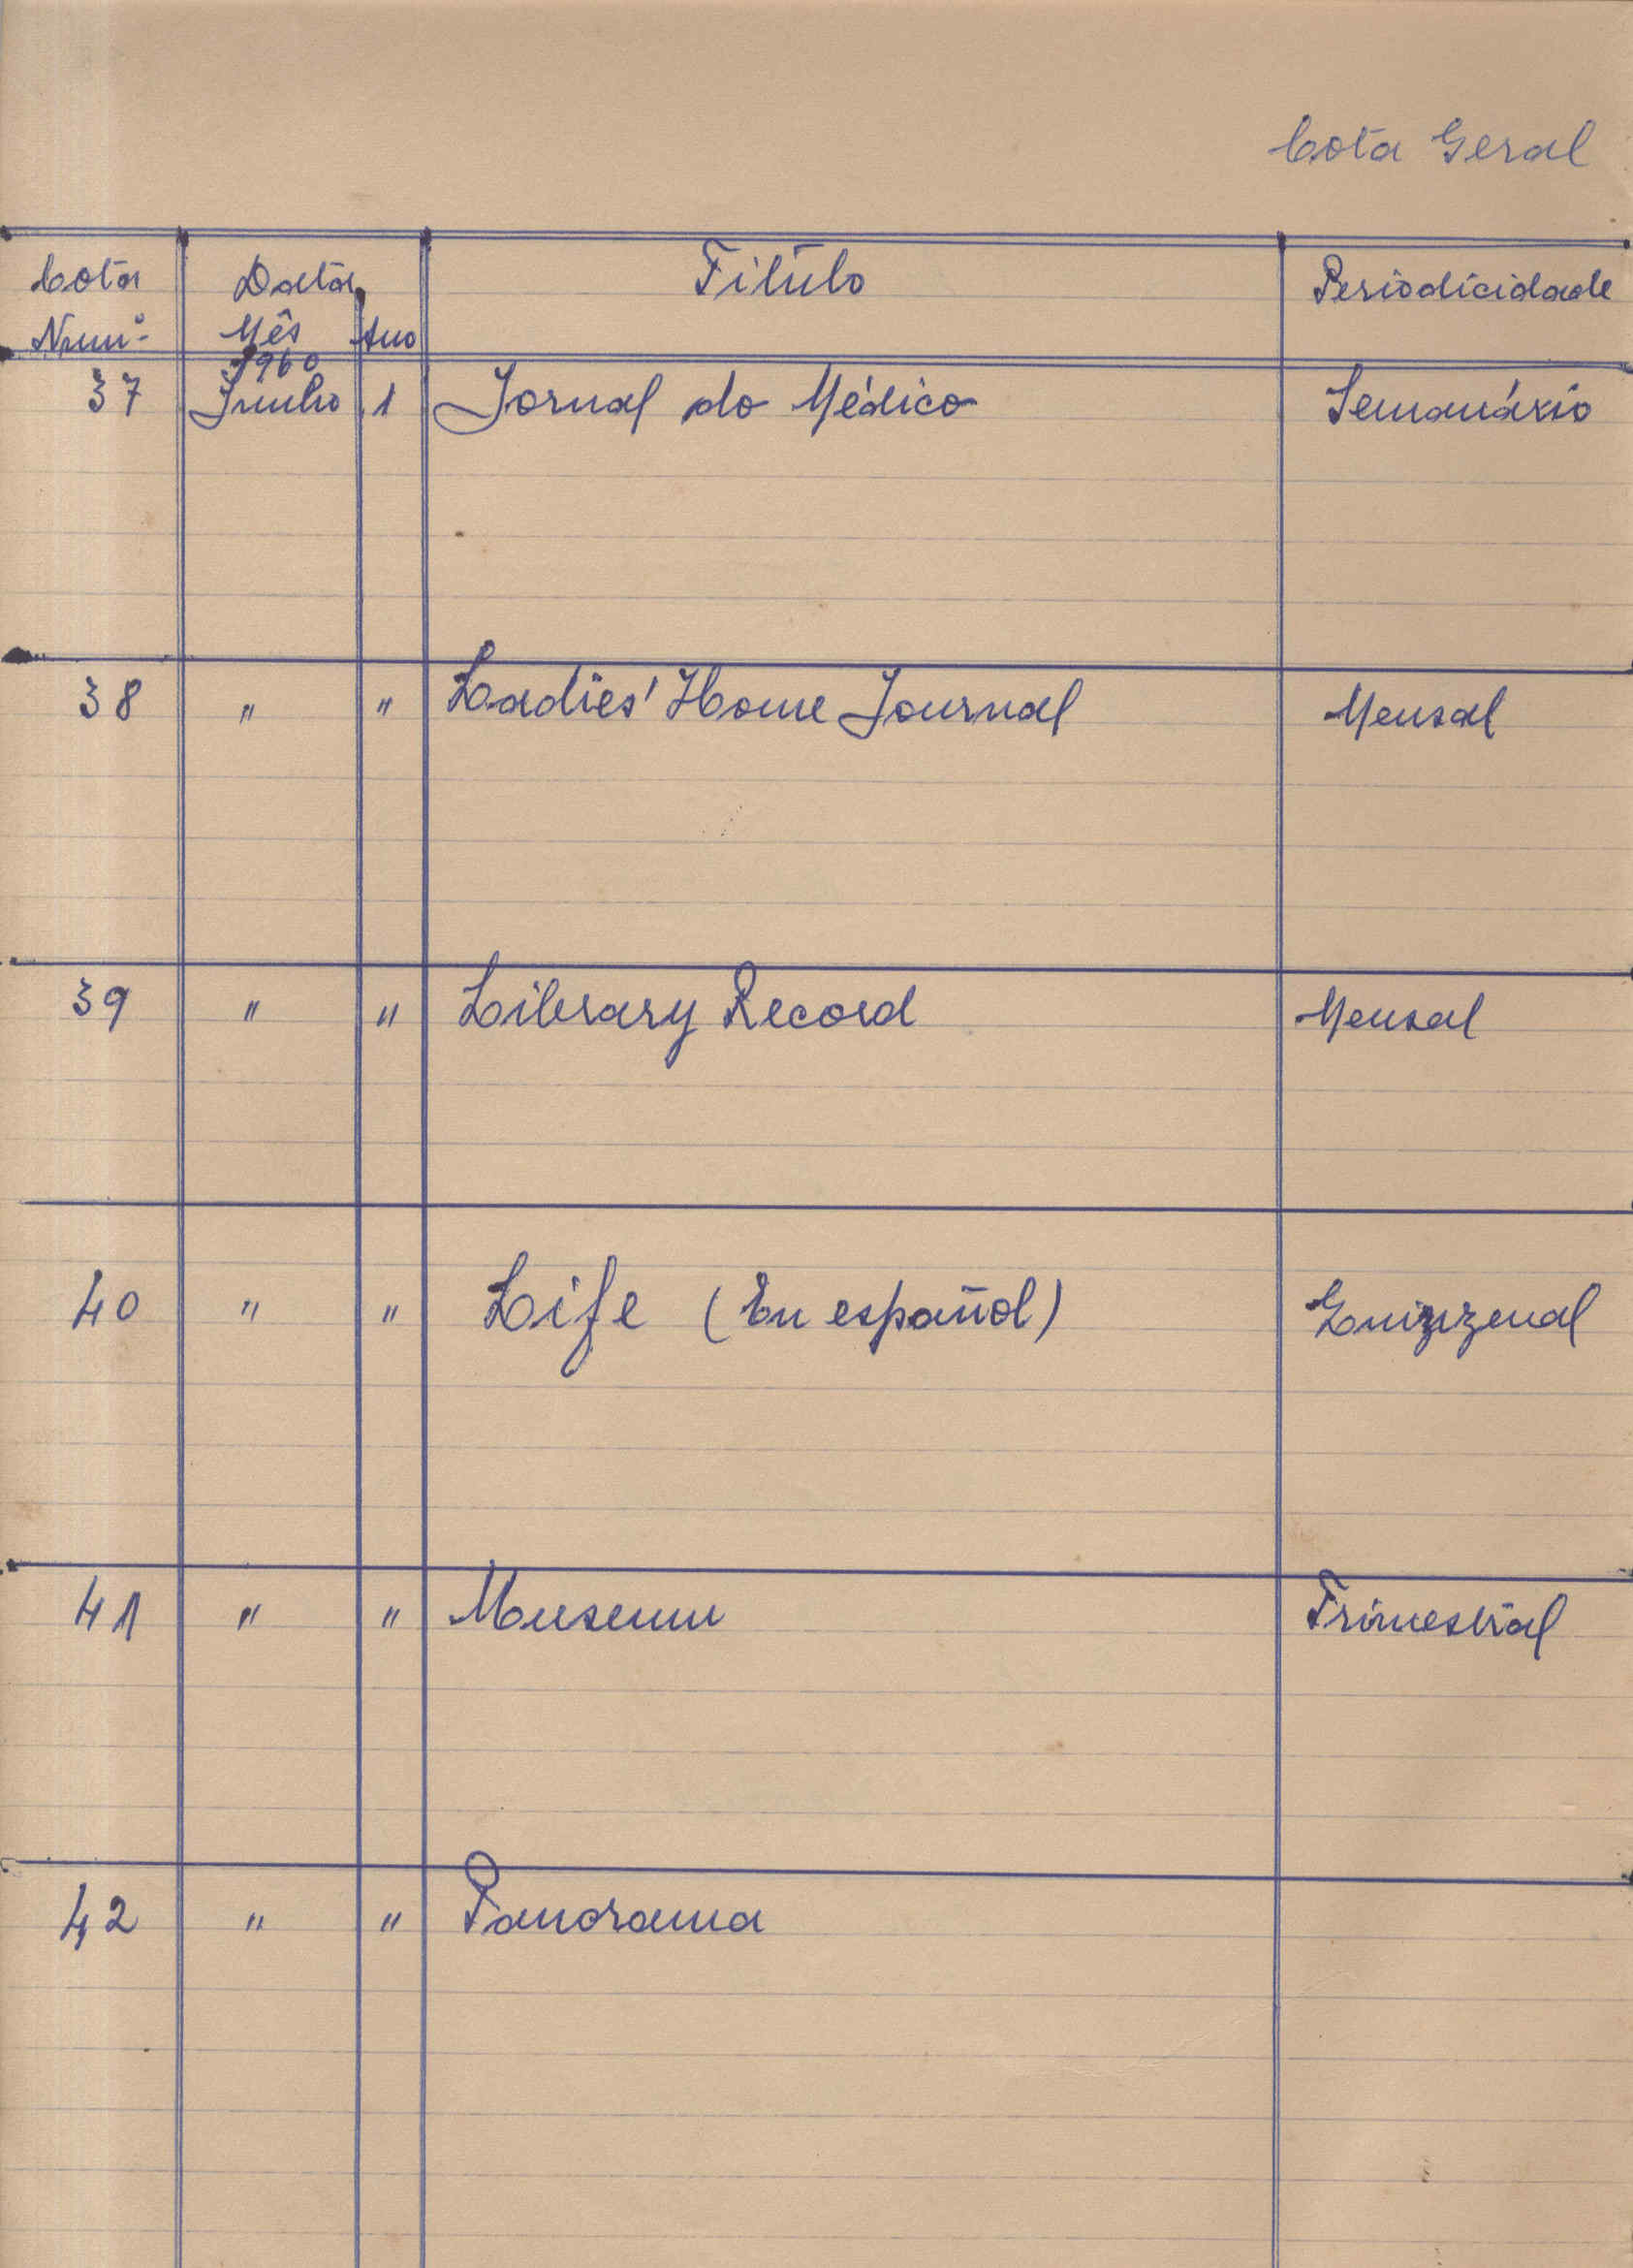 Cota Geral
Cota Data Titúlo Periodicidade
Numº Mês Ano
1960
37 Junho 1 Jornal do Médico Semanário
38 " " Ladies' Home Journal Mensal
39 " " Library Record Mensal
40 " " Life (En español)
41 " " Museum Trimestral
42 " " Panorama